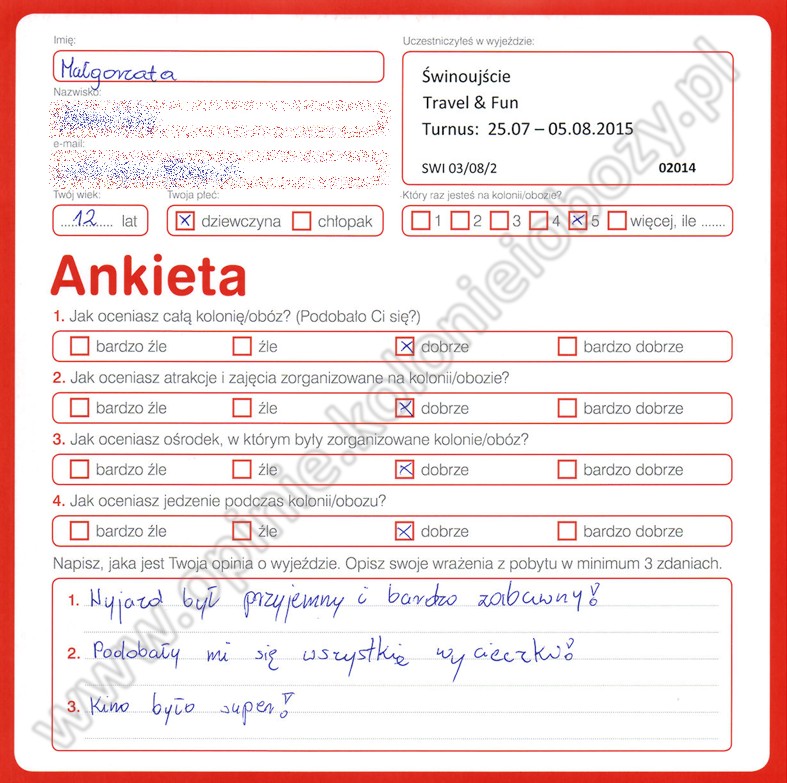 Imię:
Małgorzata
Nazwisko:
e-mail:
Uczestniczyłeś w wyjeździe:
Świnoujście
Travel & Fun
Turnus: 25.07 – 05.08.2015
SWI 03/08/2 02014
Twój wiek: Twoja płeć: Który raz jesteś na kolonii/obozie?
12 lat dziewczyna chłopak 1 2 3 4 5 więcej, ile .......
Ankieta
1. Jak oceniasz całą kolonię/obóz? (Podobało Ci się?)
bardzo źle źle dobrze bardzo dobrze
2. Jak oceniasz atrakcje i zajęcia zorganizowane na kolonii/obozie?
bardzo źle źle dobrze bardzo dobrze
3. Jak oceniasz ośrodek, w którym były zorganizowane kolonie/obóz?
bardzo źle źle dobrze bardzo dobrze
4. Jak oceniasz jedzenie podczas kolonii/obozu?
bardzo źle źle dobrze bardzo dobrze
Napisz, jaka jest Twoja opinia o wyjeździe. Opisz swoje wrażenia z pobytu w minimum 3 zdaniach.
1. Wyjazd był przyjemny i bardzo zabawny!
2. Podobały mi się wszystkie wycieczki!
3. Kino było super!
www.opinie.kolonieiobozy.pl